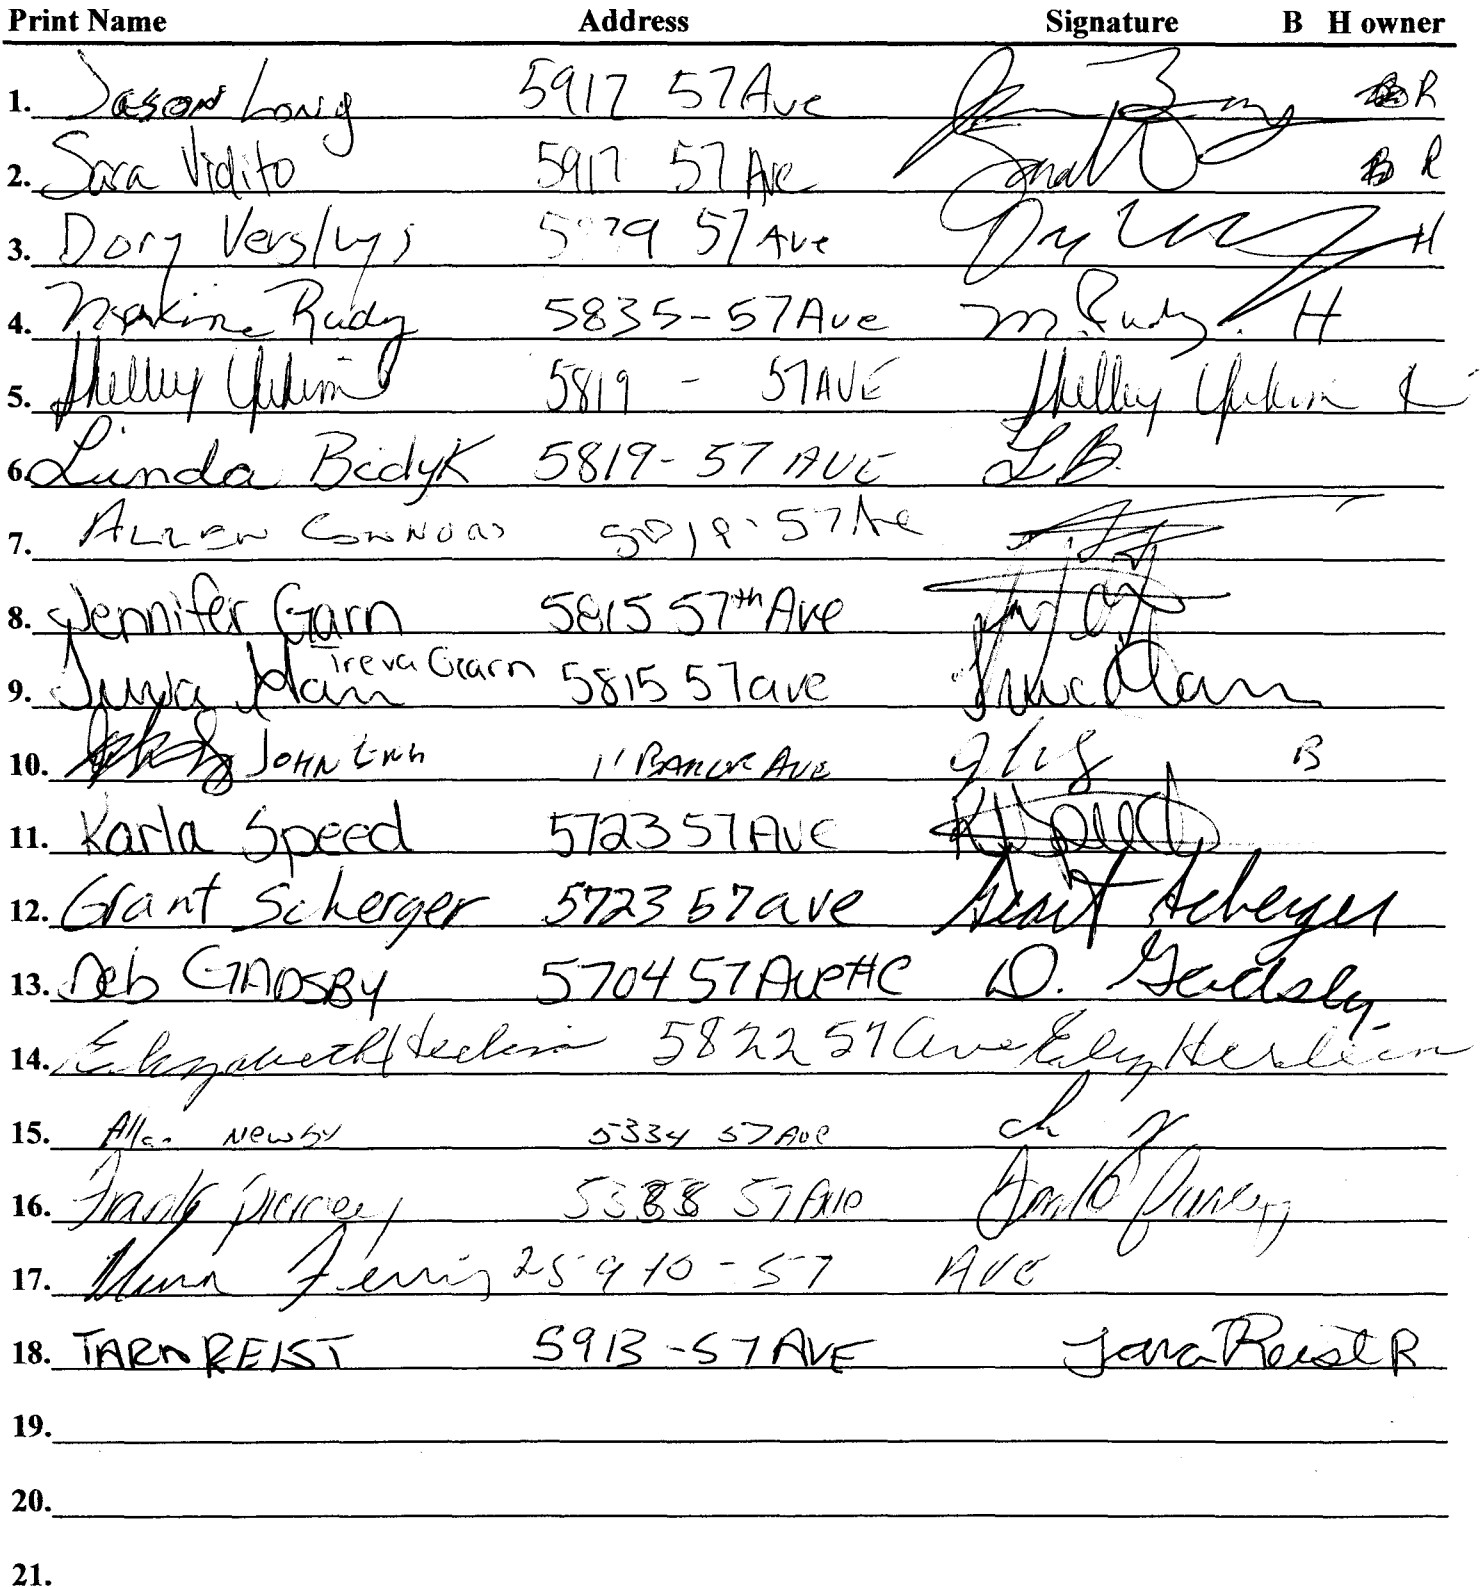 Print Name Address Signature B H owner
1. Jason Long 5917 57 Ave R
2. Sara Vidito 5917 57 Ave B R
3. Dory Versluys 57 Ave H
4. Rudy 5835-57 Ave M. Rudy. H
5. Shelley 5819 - 57 AVE Shelley
6. Linda Bidyk 5819-57 AVE LB.
7. Allen Connors 5819-57 Ave
8. Jennifer Garn 5815 57th Ave
9. Treva Garn 5815 57 ave
10. John 11 Ave B
11. Karla Speed 5723 57 Ave K Speed
12. Grant Scherger 5723 57 ave Grant Scherger
13. Deb GADSBY 5704 57 Ave #C D. Gadsby
14. 5822 57 Ave
15. Allan Newby 5334 57 Ave
16. Frank Piercey 5388 57 Ave
17. 57 AVE
18. TARA REIST 5913-57 AVE Tara Reist R
19.
20.
21.